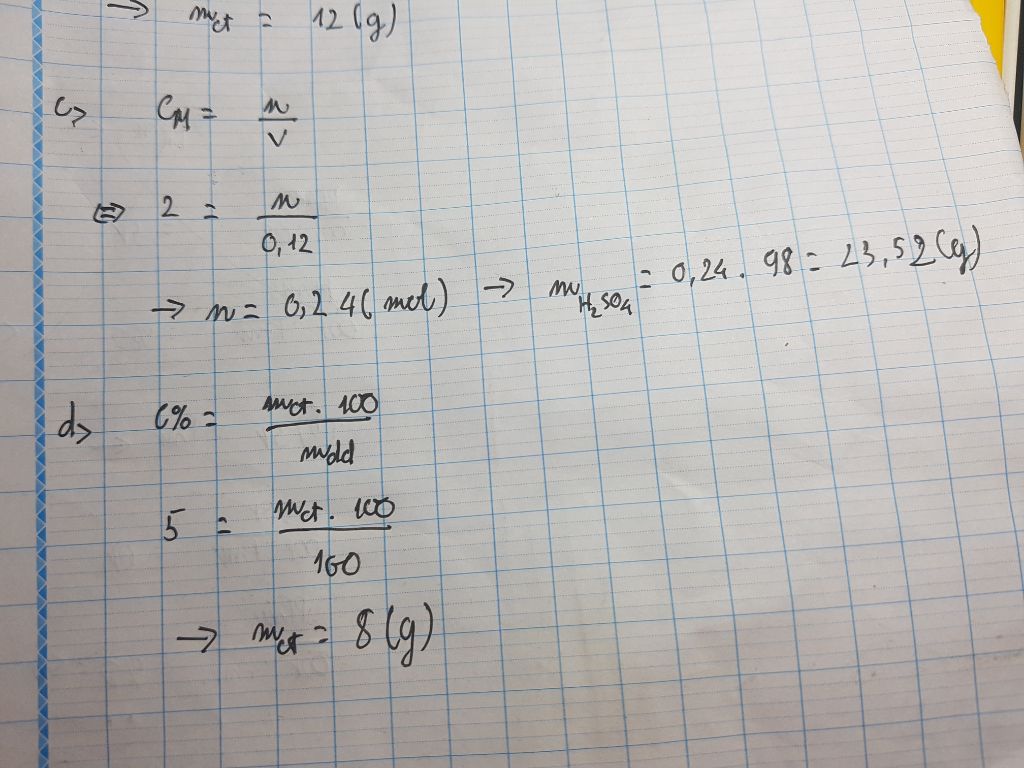 → mct = 12 (g)
c> CM = n/V
⇔ 2 = n/0,12
→ n = 0,24 (mol) → mH2SO4 = 0,24 . 98 = 23,52 (g)
d> C% = mct . 100/mdd
5 = mct . 100/160
→ mct = 8 (g)